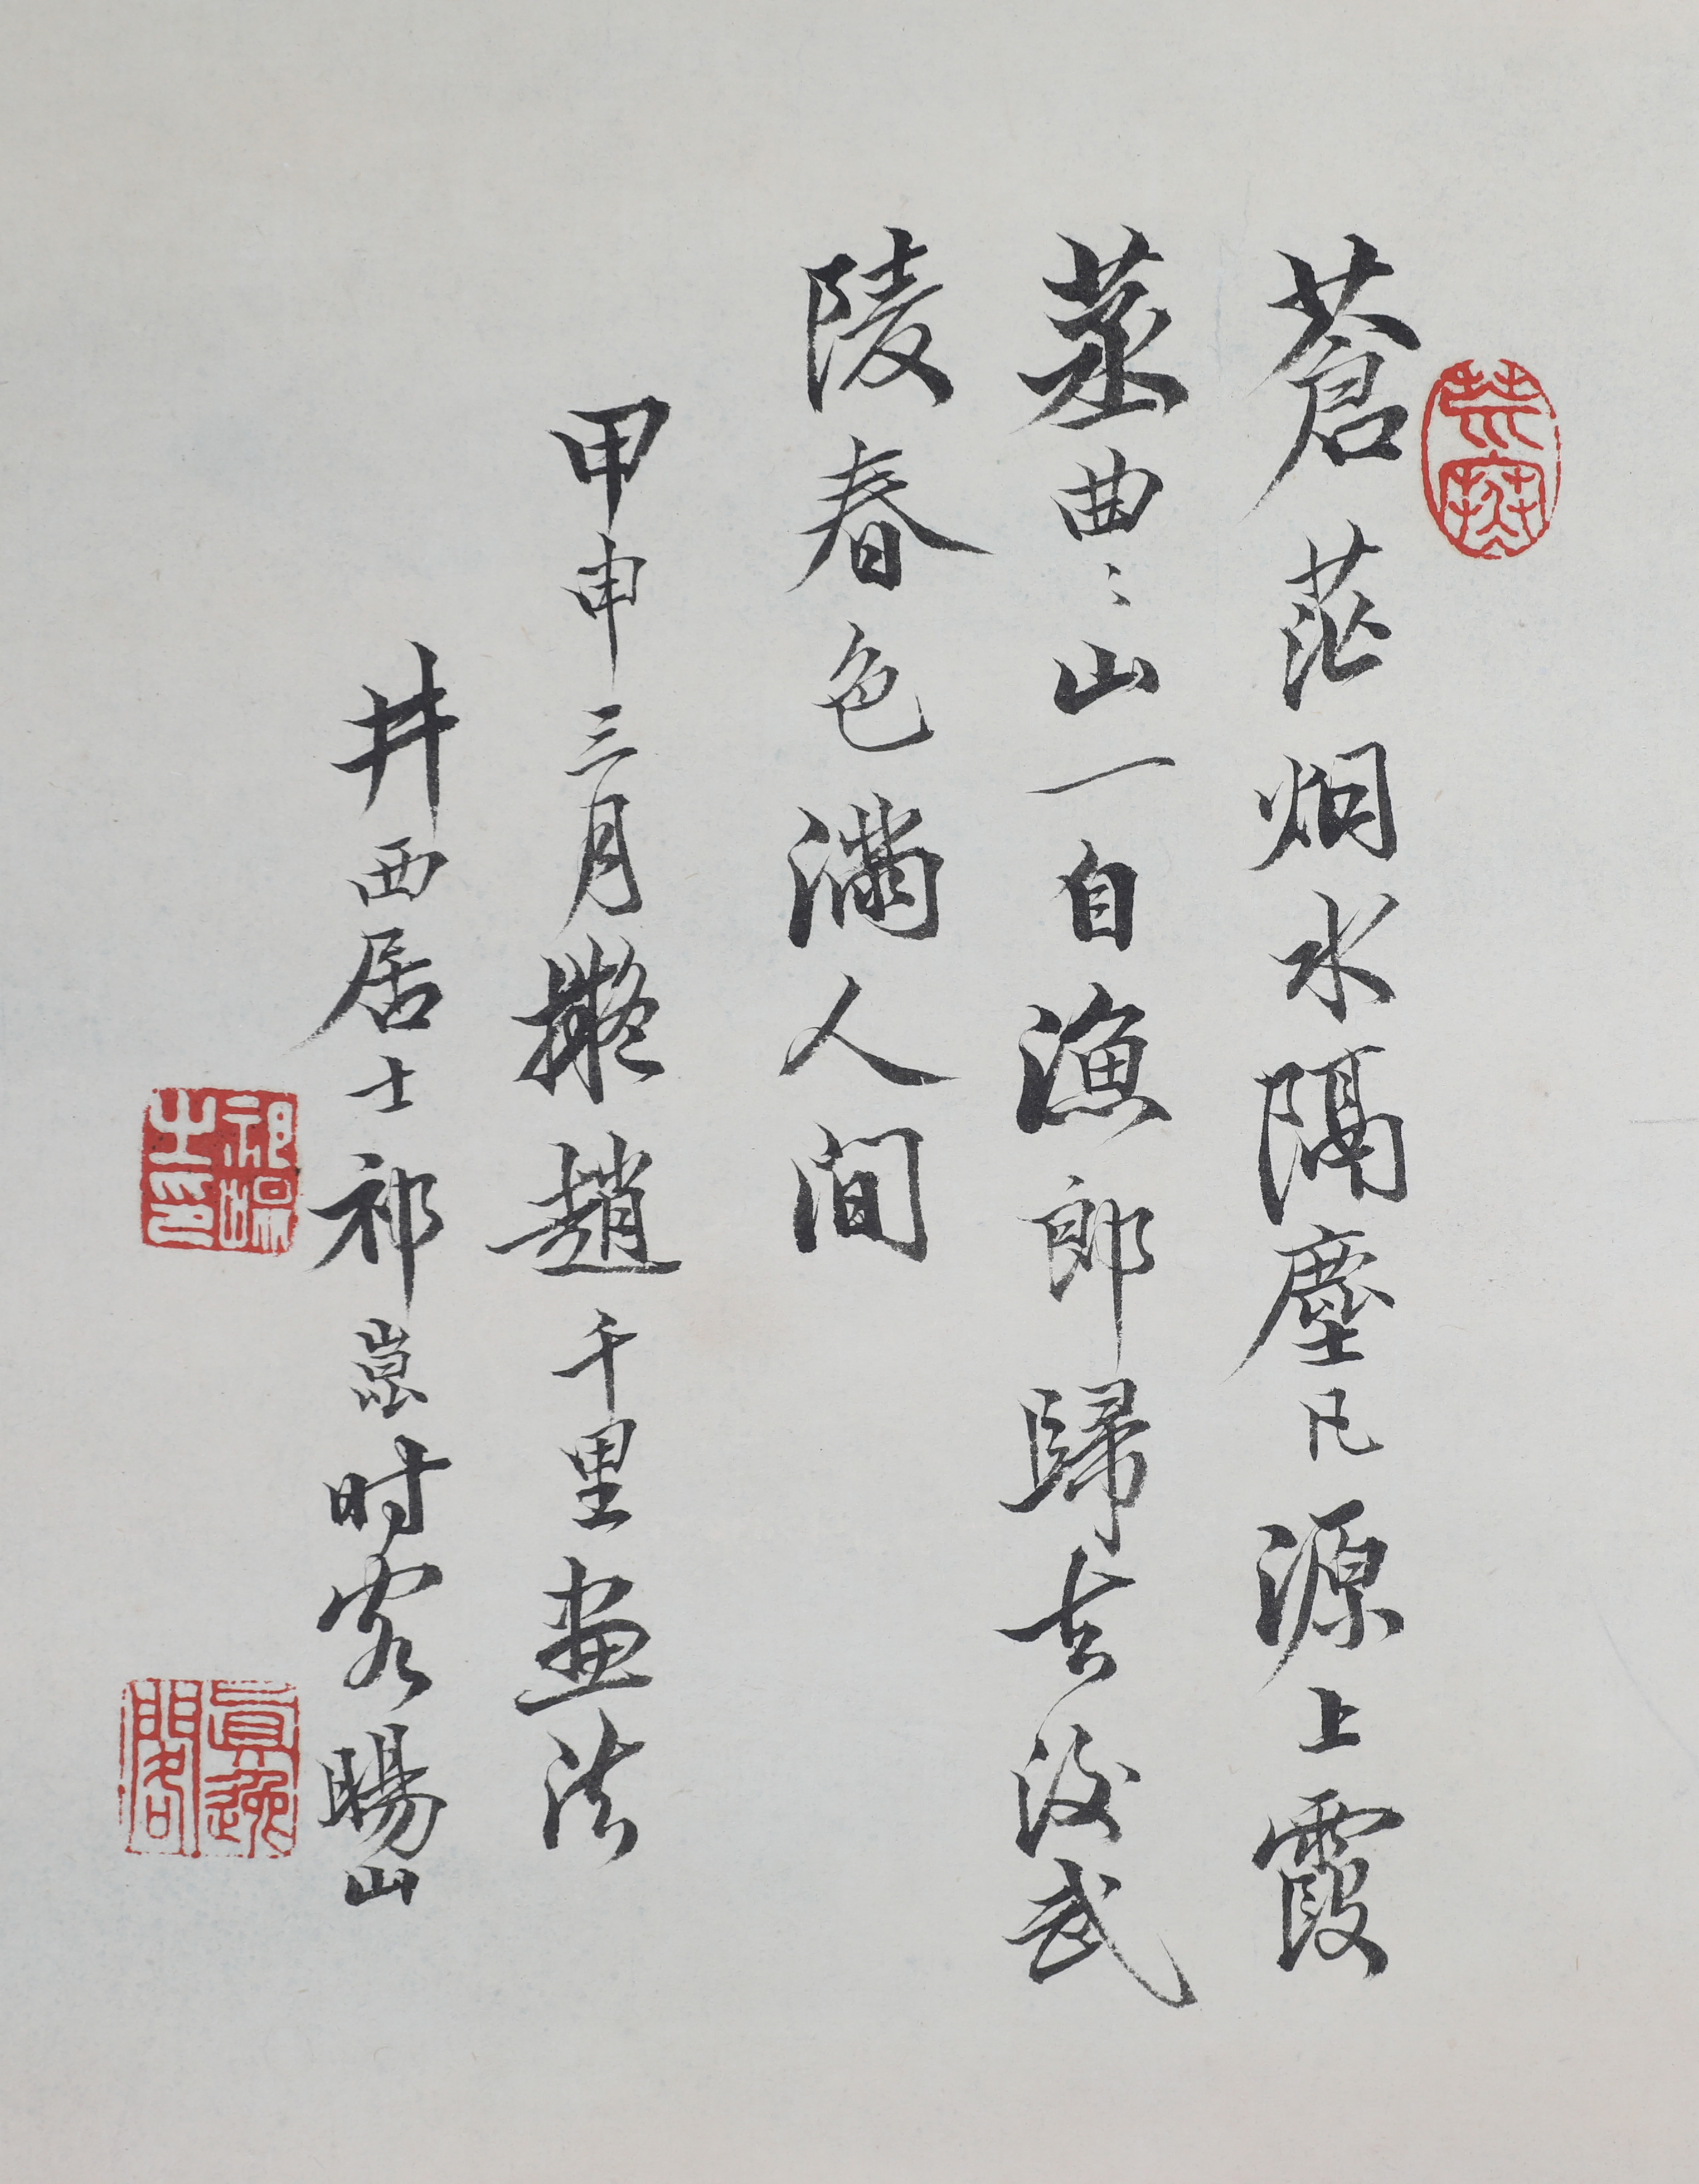 蒼茫烟水隔塵凡源上霞
蒸曲〻山一自漁郎歸去後武
陵春色滿人間
甲申三月擬趙千里畫法
井西居士祁崑时客暘山
祁崑之印
真逸閣